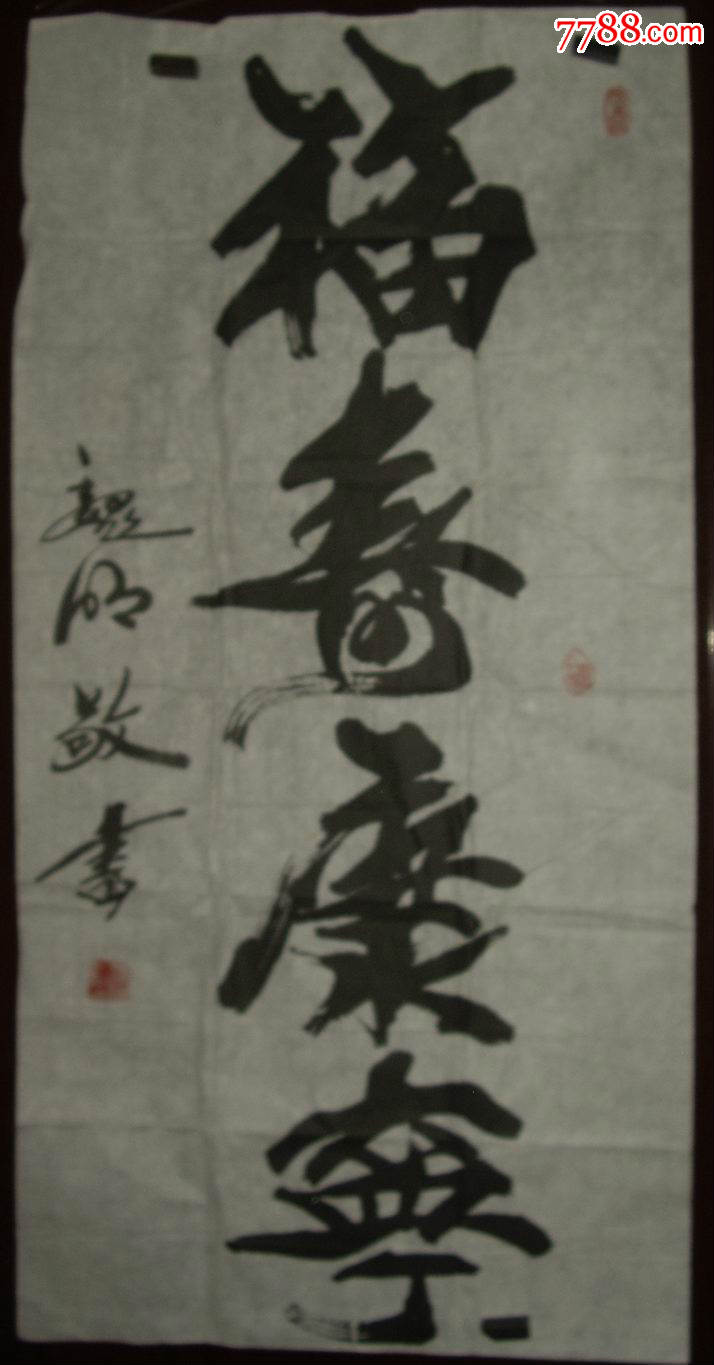 7788.com
福壽康寧
魏明敬書